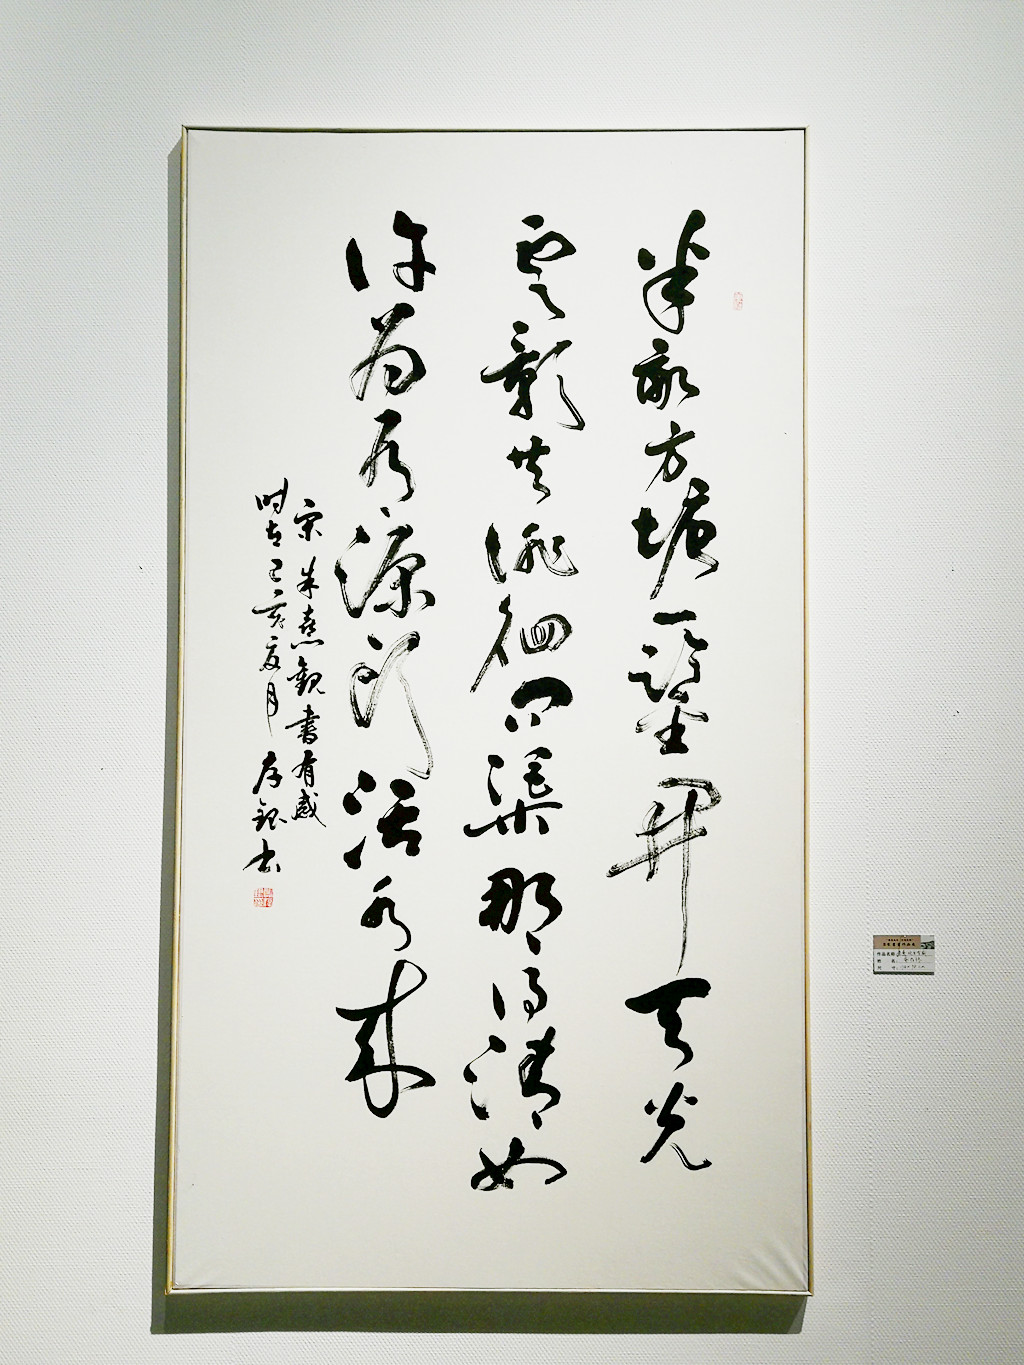 半亩方塘一鉴开天光
云影共徘徊问渠那得清如
许为有源头活水来
宋朱熹观书有感
时在己亥夏月存书
作品名称
姓名
尺寸